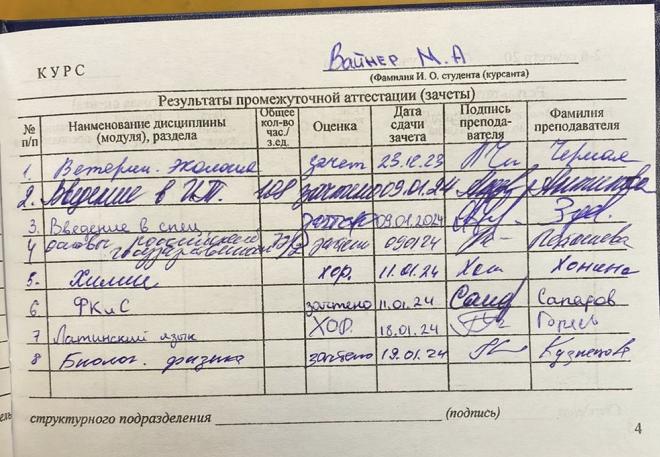 КУРС Вайнер М.А
(Фамилия И. О. студента (курсанта)
Результаты промежуточной аттестации (зачеты)
№ п/п Наименование дисциплины (модуля), раздела Общее кол-во час./ з.ед. Оценка Дата сдачи зачета Подпись препода-вателя Фамилия преподавателя
1. Ветерин. экология зачет 23.12.23 Черная
2. Введение в И.Т. 108 зачтено 09.01.24
3. Введение в спец 09.01.2024
4 российской государственности 72/2 зачтено 090124
5. Химии хор. 11.01.24 Хонина
6 ФКиС зачтено 11.01.24 Сапаров
7 Латинский язык ХОР. 18.01.24
8 Биолог. физика зачтено 19.01.24 Кузнецов
структурного подразделения (подпись)
4